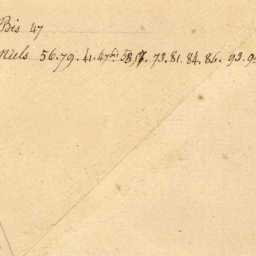 Bis 47
Niels. 56.79. 41. 47bis 58, 73. 81. 84. 86. 93.